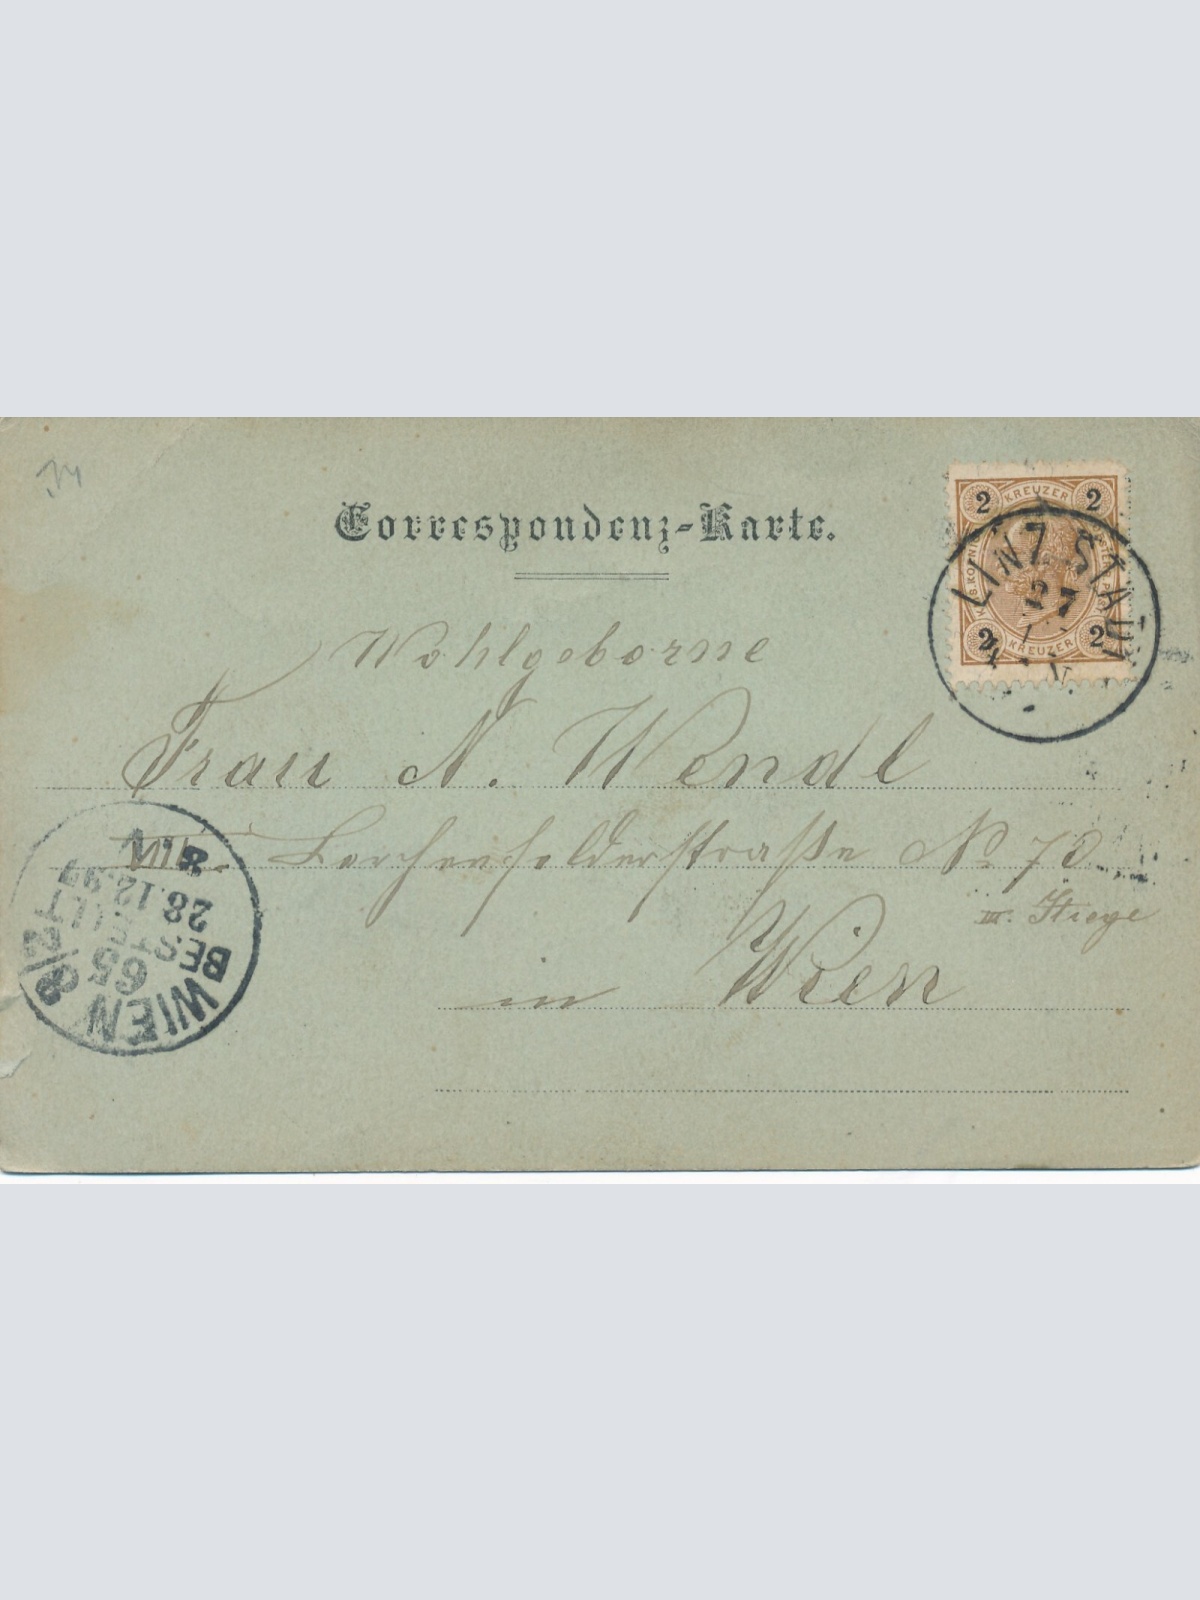 Correspondenz-Karte.
2 KREUZER 2
2 KREUZER 2
LINZ STADT
27
Wohlgeborne
Frau N. Wendl
VIII. Lerchenfelderstraße No 72
III. Stiege
in Wien
WIEN 8/2
65
BESTELLT
28.12.97
8 V